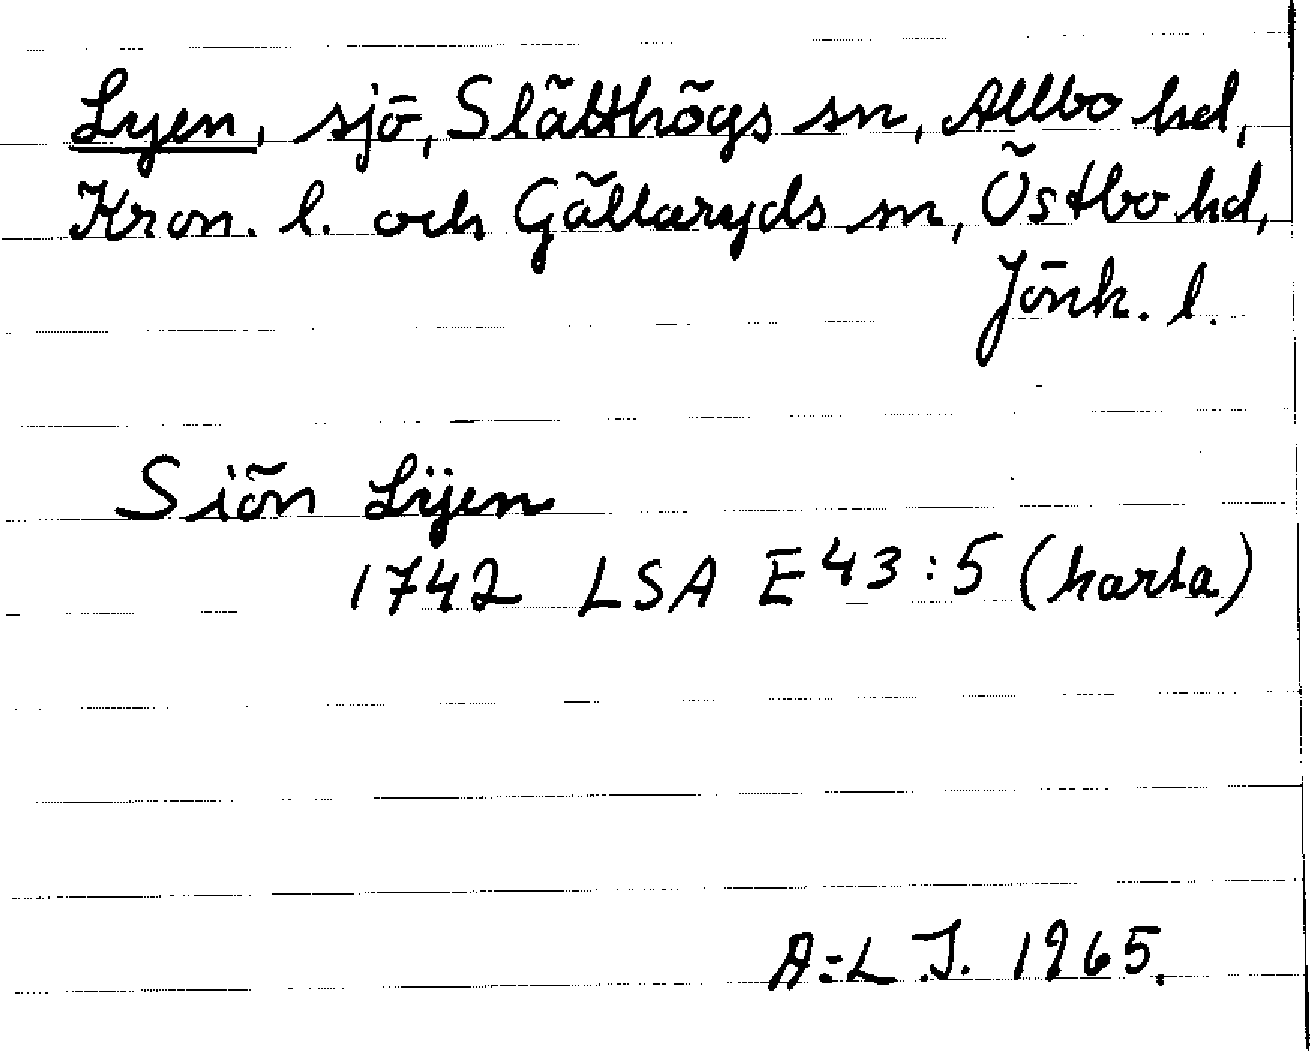 Lyen, sjö, Slätthögs sn, Allbo hd,
Kron. l. och Gällaryds sn, Östbo hd,
Jönk. l.
Siön Lÿen
1742 LSA E 43:5 (karta)
A-L J. 1965.